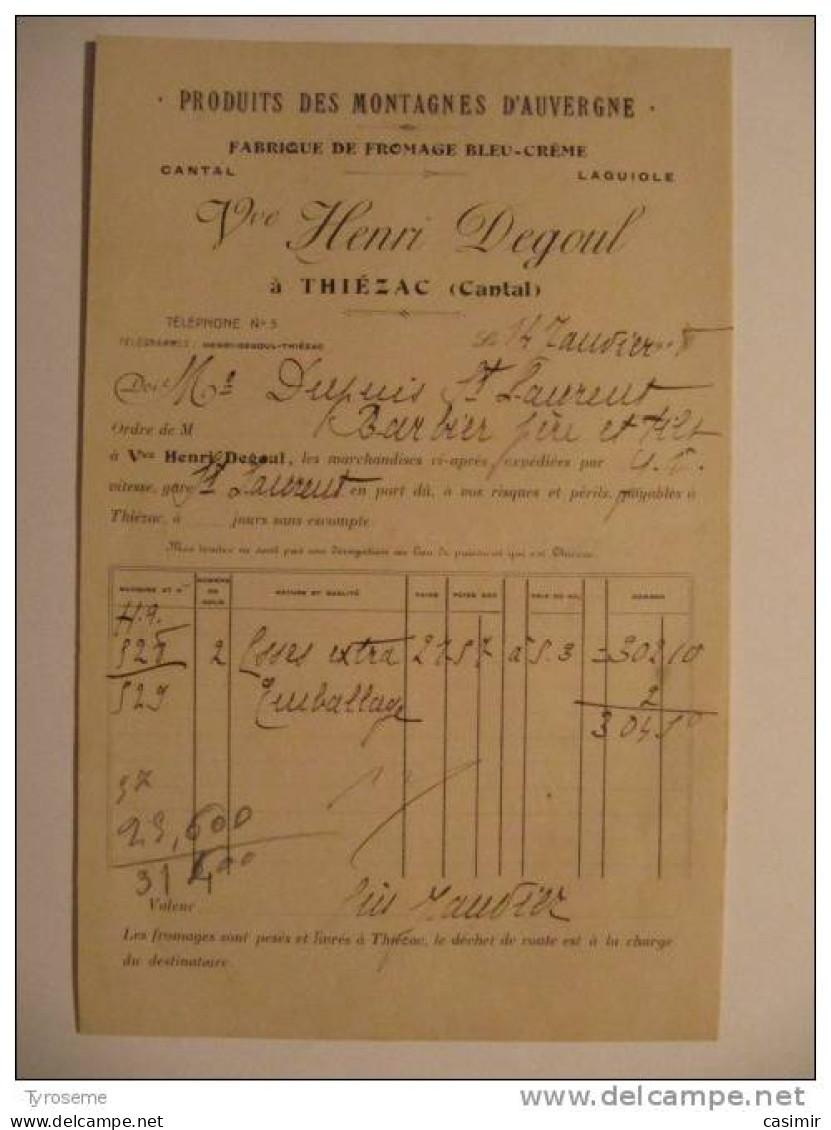 · PRODUITS DES MONTAGNES D'AUVERGNE ·
FABRIQUE DE FROMAGE BLEU-CRÈME
CANTAL LAGUIOLE
Vve Henri Degoul
à THIÉZAC (Cantal)
TÉLÉPHONE No 5
TÉLÉGRAMMES : HENRI-DEGOUL-THIÉZAC
14 Janvier
Doit Mr Dupuis St Laurent
Ordre de M Barbier père et fils
à Vve Henri Degoul, les marchandises ci-après expédiées par
vitesse, gare St Laurent en port dû, à vos risques et périls, payables à
Thiézac, à jours sans escompte
Mes traites ne sont pas une dérogation au lieu de paiement qui est Thiézac.
NATURE ET QUALITÉ
529 2 Esses extra 27 57 à 5.3 = 302 10
529 Emballage 2
304 10
57
31 400
Valeur fin Janvier
Les fromages sont pesés et livrés à Thiézac, le déchet de route est à la charge
du destinataire.
Tyroseme
www.delcampe.net
casimir